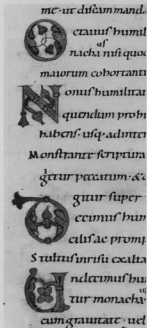 me· ut discam mand
Octauus humil
nacha nisi quod
maiorum cohortanti
Nonus humilitat
quendum prohi
habens· usq; ad inter
Monstrante scriptura
getur peccatum· &
Decimus hum
gitur super
cilis ac promp
Stultus in risu exalta
Undecimus hu
tur monacha·
cum grauitate· uel